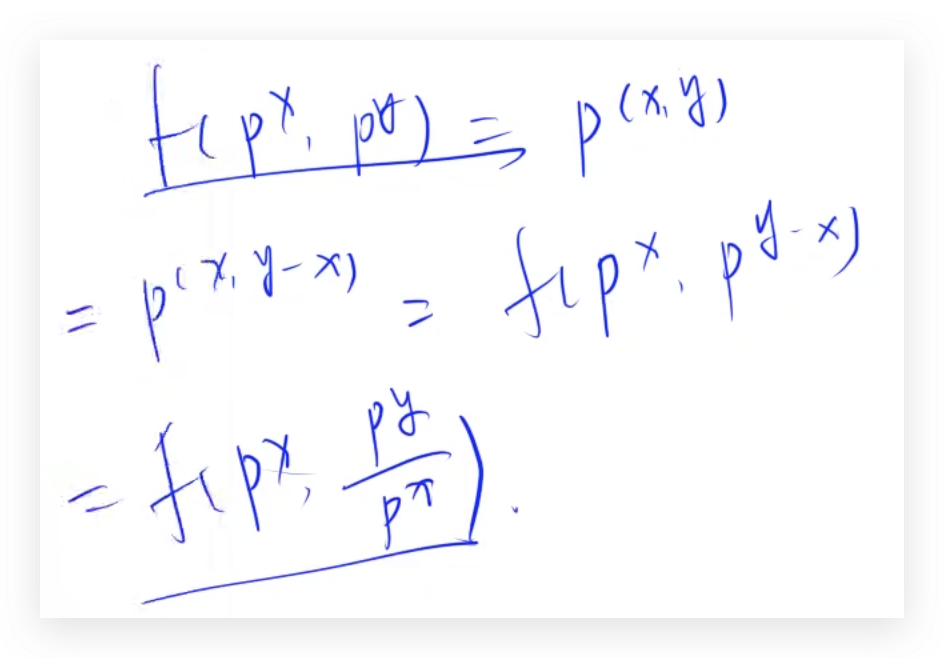 f(p^x, p^y) = p^(x,y)
= p^(x,y-x) = f(p^x, p^y-x)
= f(p^x, p^y/p^x).